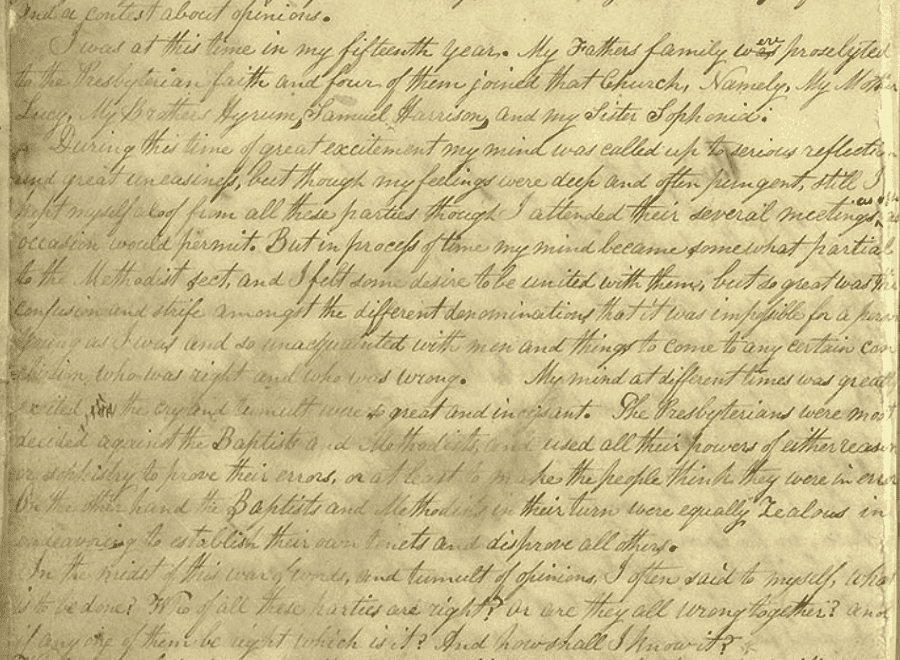 and a contest about opinions.
I was at this time in my fifteenth year. My Fathers family was erе proselyted
to the Presbyterian faith and four of them joined that Church, Namely, My Mother
Lucy, My Brothers Hyrum, Samuel Harrison, and my Sister Sophonia.
During this time of great excitement my mind was called up to serious reflection
and great uneasiness, but though my feelings were deep and often pungent, still I
kept myself aloof from all these parties though I attended their several meetings as often as
occasion would permit. But in process of time my mind became somewhat partial
to the Methodist sect, and I felt some desire to be united with them, but so great was the
confusion and strife amongst the different denominations that it was impossible for a person
young as I was and so unacquainted with men and things to come to any certain con
clusion who was right and who was wrong. My mind at different times was greatly
excited the cry and tumult were so great and incessant. The Presbyterians were most
decided against the Baptists and Methodists, and used all their powers of either reason
or sophistry to prove their errors, or at least to make the people think they were in error
On the other hand the Baptists and Methodists in their turn were equally Zealous in
endeavoring to establish their own tenets and disprove all others.
In the midst of this war of words, and tumult of opinions, I often said to myself, what
is to be done? Who of all these parties are right? Or are they all wrong together? and
if any one of them be right which is it? And how shall I know it?